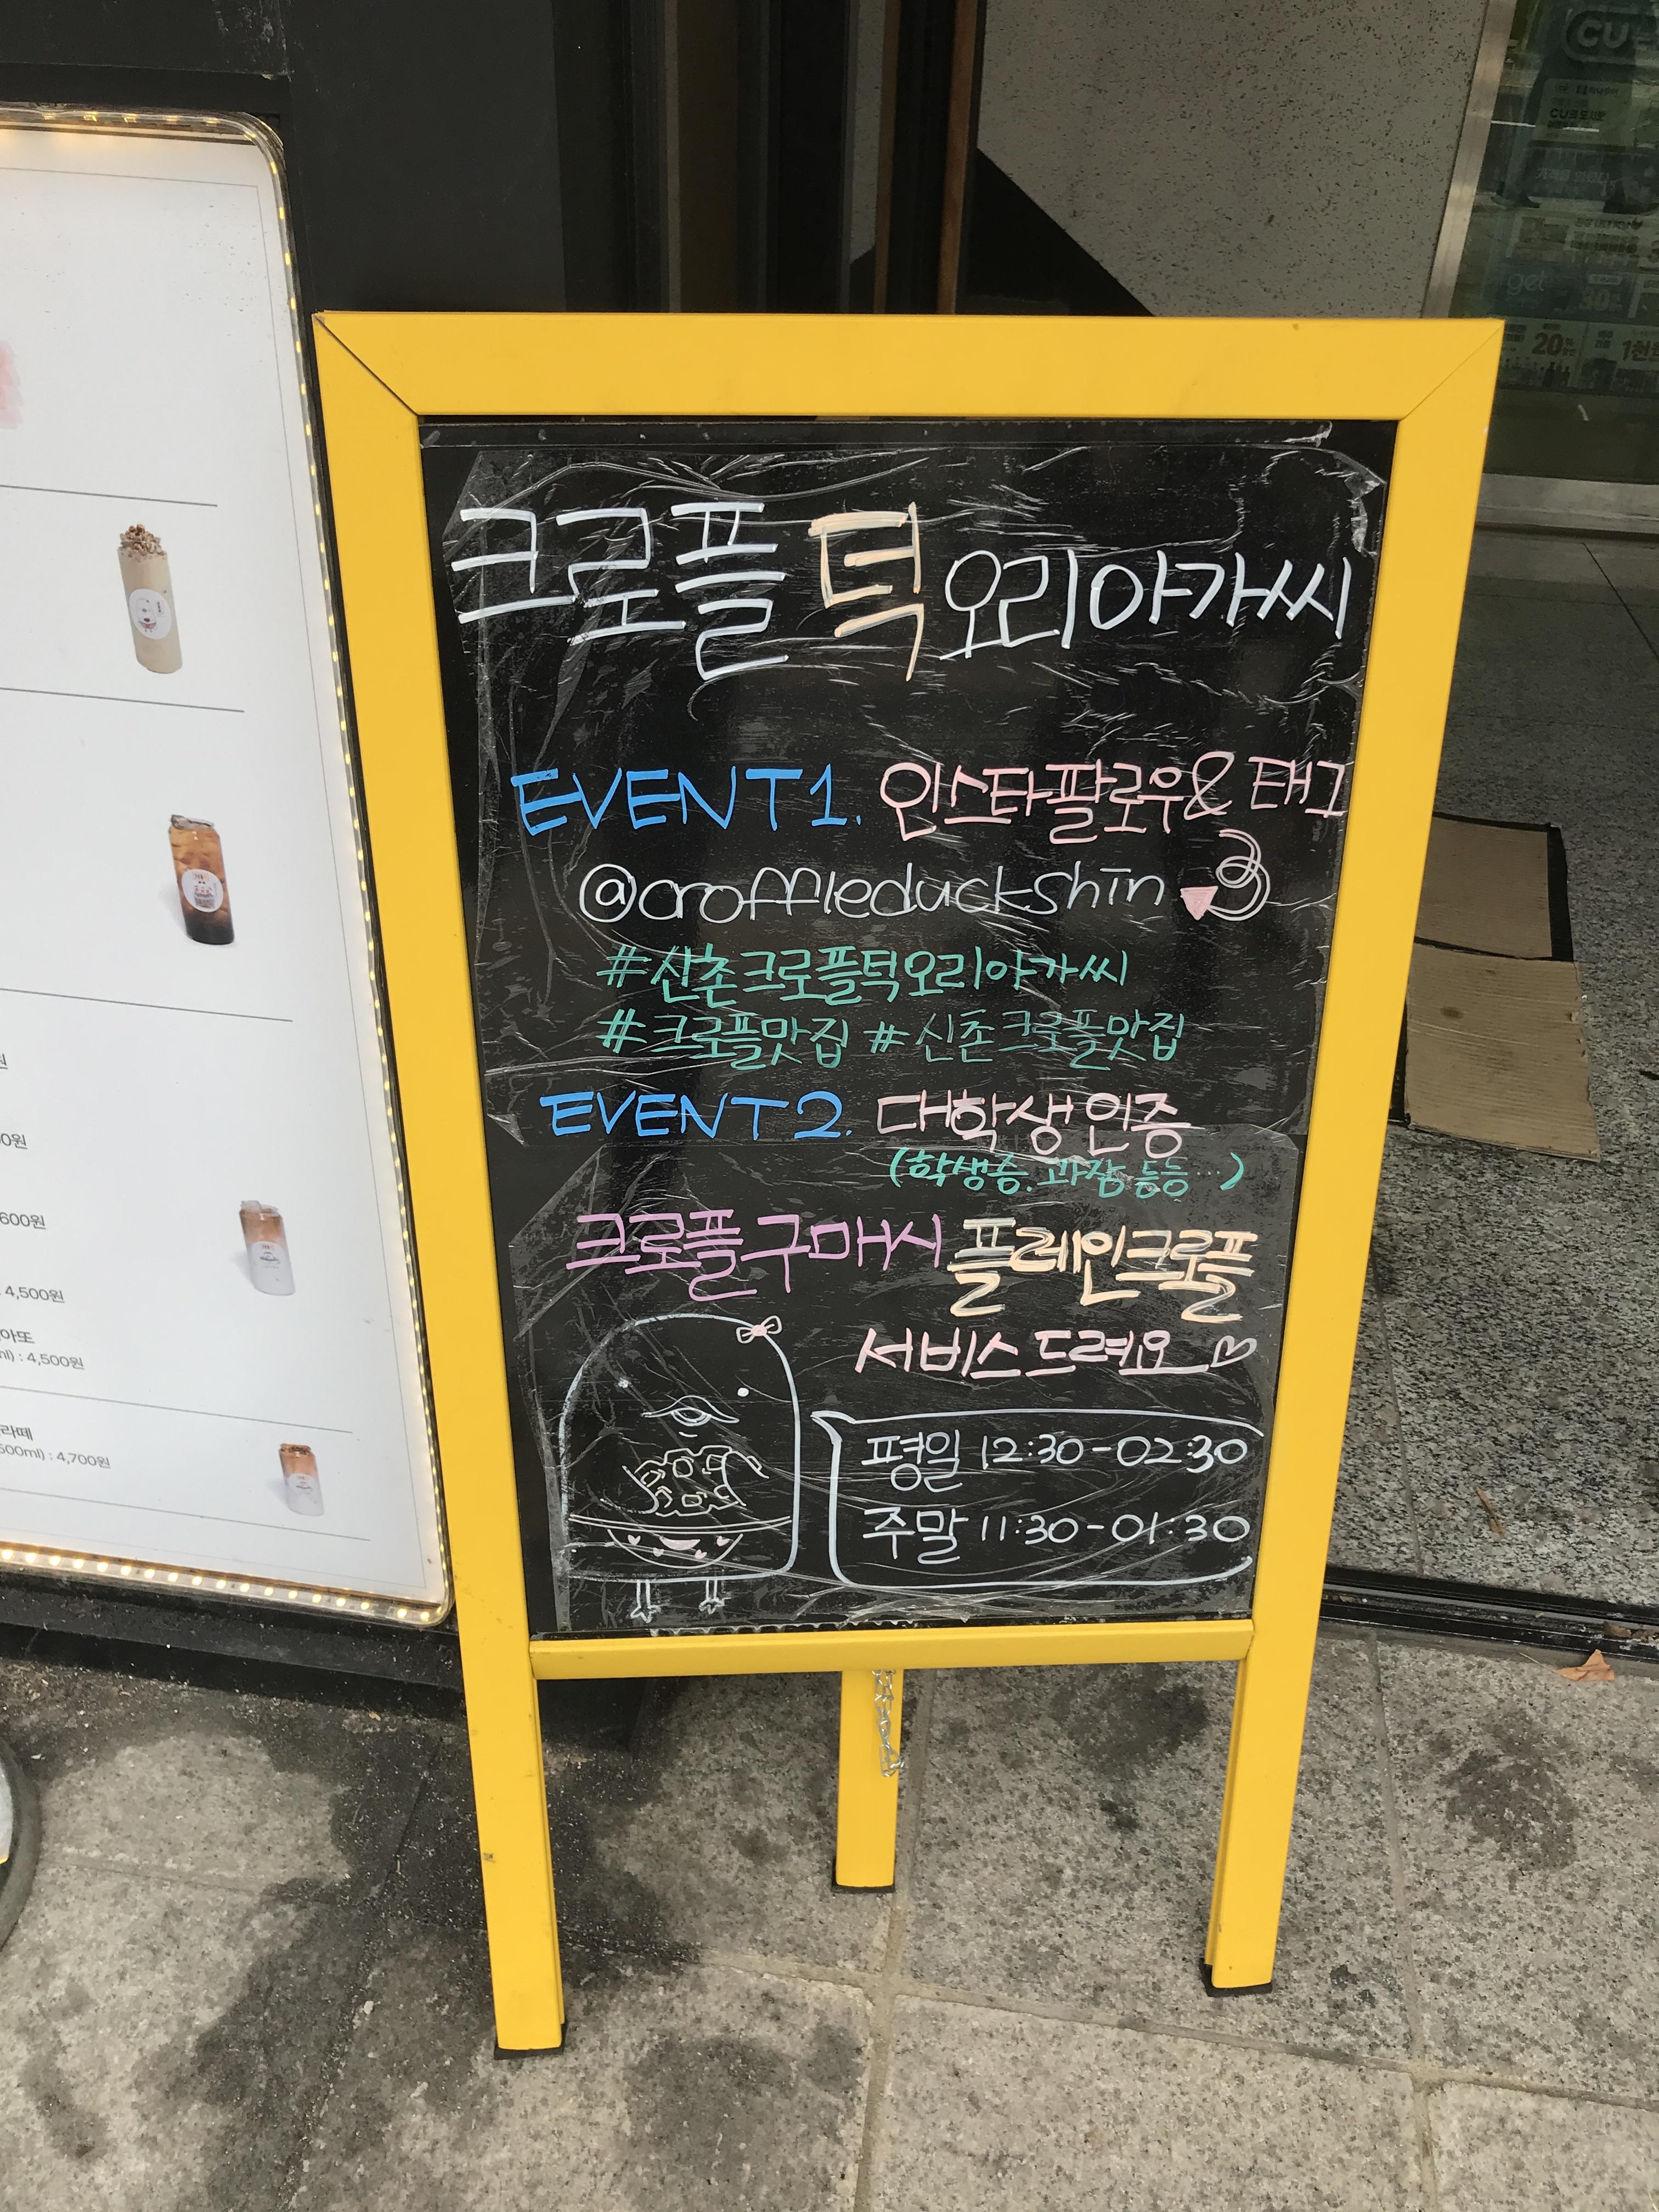 크로플 턱 오리아가씨
EVENT1. 인스타팔로우 & 태그
@croffleduckshin
#신촌크로플턱오리아가씨
#크로플맛집 #신촌크로플맛집
EVENT2. 대학생인증
(학생증. 과잠 등등…)
크로플구매시 플레인크로플
서비스드려요
평일 12:30-02:30
주말 11:30-01:30
600원
4,500원
: 4,500원
라떼
500ml) : 4,700원
CU
get
20